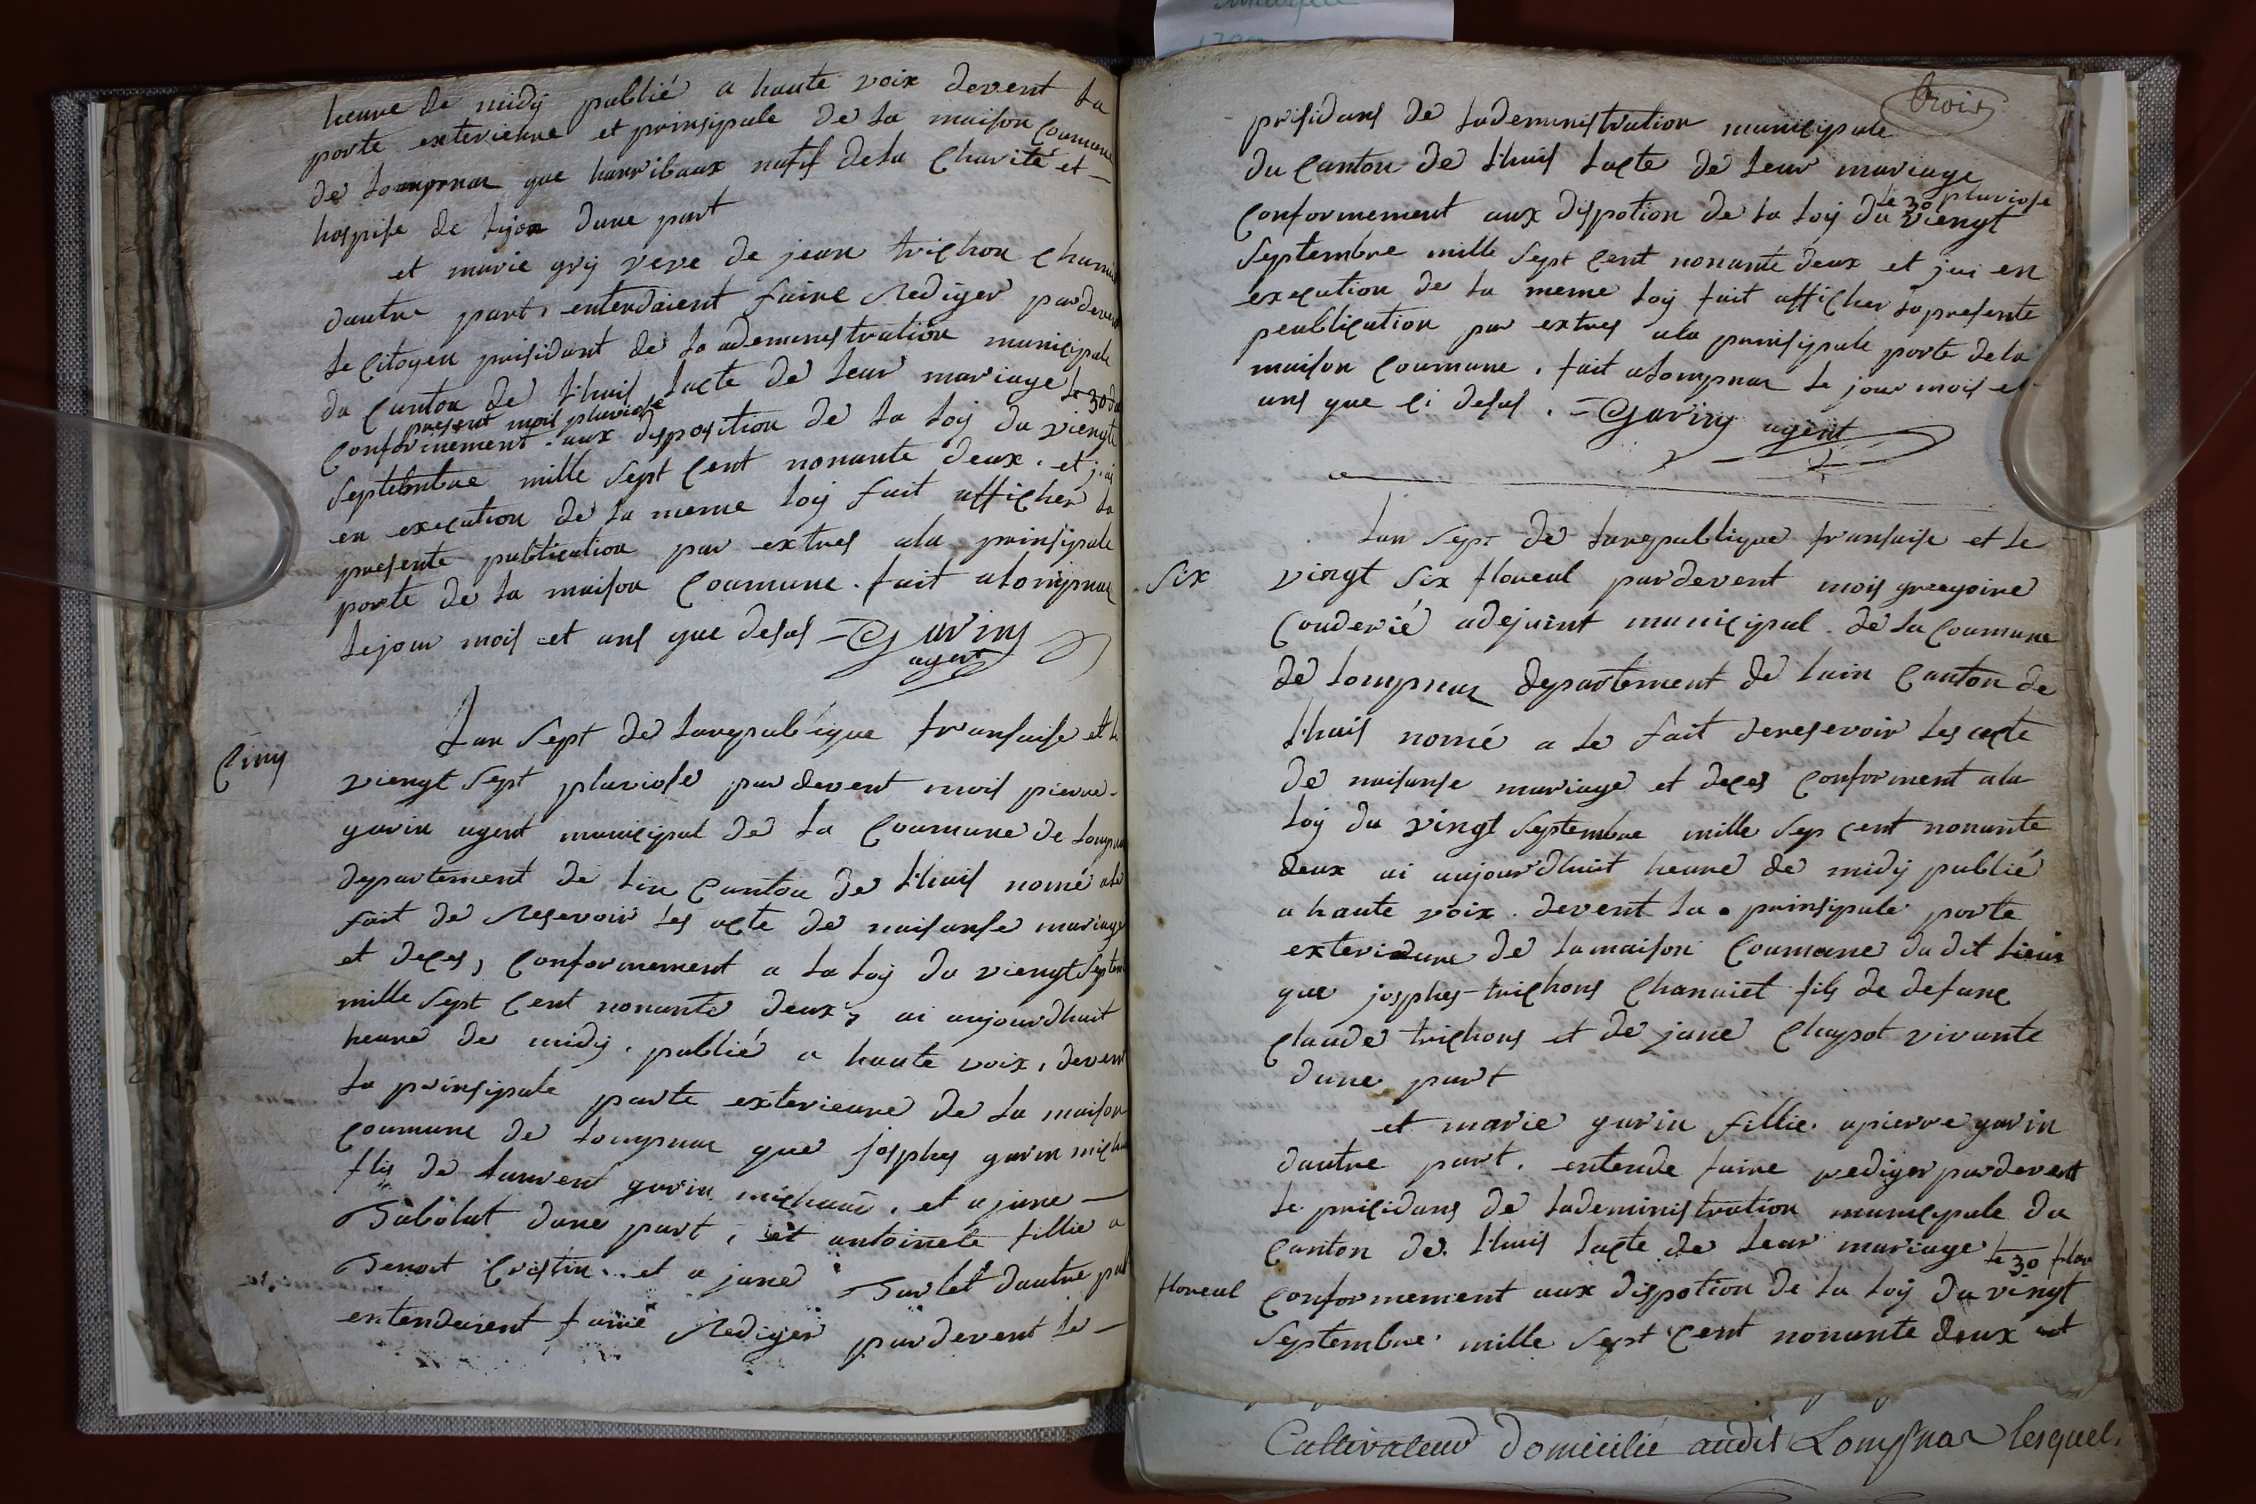 heure de midÿ publié a haute voix devent la
porte exterieure et prinsipale de la maison Coumune
de lompnas que harribaux natif dela Charité et
hospise de lÿon dune part
et marie grÿ veve de jean trichon
dautre part, entendaient faire Rediger pardevent
le Citoyen prisidant de laademenistration municipale
du Canton de Lhuis lacte de leur mariage le 30 du
present mois pluviose
Conformement aux disposition de la loÿ du viengts
septembre mille sept Cent nonante deux. et jai
en execution de la meme loÿ fait afficher la
presente publication par extres ala prinsipale
porte de la maison Coumune. fait alompnas
lejour mois et ans que desus = Gavin
agent
Cinq
Lan sept de larepublique fransaise et le
viengt sept pluviose pardevent mois pierre
gavin agent municipal de la Coumune de lompnas
departement de lin Canton de Lhuis nomé ale
fait de Resevoir les acte de naisanse mariage
et deces, Conformement a la loÿ du viengt septem
mille sept Cent nonante deux, ai aujourdhuit
heure de midÿ. publié a haute voix, devent
la prinsipale parte exterieure de la maison
Coumune de lompnas que josphes gavin
flis de laurent gavin michaud. et a jane
Babolat dune part, et antoinete fillie a
Benoit Cristin.. et a jane Burlet dautre part
entendaient faire Rediger pardevent le
trois
prisidans de lademenistration municipale
du Canton de Lhuis lacte de leur mariage
le 30 pluviose
Conformement aux dispotion de la loÿ du viengt
septembre mille sept Cent nonante deux et jai en
execution de la meme loÿ fait afficher lapresente
peublication par extres ala prinsipale porte dela
maison Coumune. fait alompnas le jour mois et
ans que ci desus. = Gavin agent
Six
Lan sept de larepublique fransaise et le
vingt six floreal pardevent mois greegoire
Couderié adejuint municipal de la Coumune
de lompnas departement de lain Canton de
Lhuis nomé a le fait deresevoir les acte
de naisanse mariage et deces Conforment ala
loÿ du vingt septembre mille sep cent nonante
deux ai aujourdhuit heure de midÿ publié
a haute voix. devent la prinsipale porte
exterieure de lamaison Coumune du dit lieus
que josphes trichons Charviet fils de defunc
Claude trichons et de jane Chapot vivante
dune part
et marie gavin fillie. apierre gavin
dautre part. entende faire rediger pardevent
le pricidans de ladeministration municipale du
Canton de Lhuis lacte de leur mariage le 30 flor
floreal
Conformement aux dispotion de la loÿ du vingt
septembre mille sept Cent nonante deux et
Cultivateur domicilié audit Lompnas lesquel.